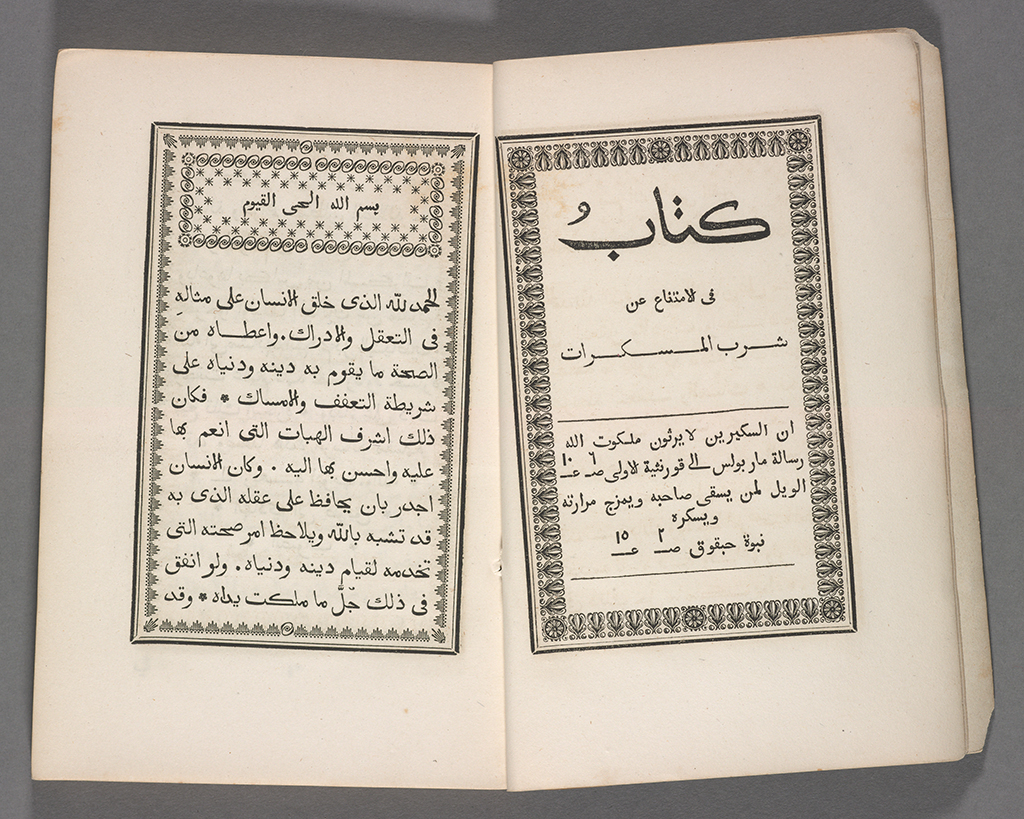 كتابٌ
فى الامتناع عن
شرب المسكرات
ان السكيرين لا يرثون ملكوت الله
رسالة مار بولس الى قورنثية الاولى صـ ٦ عـ ١٠
الويل لمن يسقى صاحبه ويمزج مرارته
ويسكره
نبوة حبقوق صـ ٢ عـ ١٥
بسم الله الحى القيوم
الحمد لله الذى خلق الانسان على مثاله
فى التعقل والادراك. واعطاه من
الصحة ما يقوم به دينه ودنياه على
شريطة التعفف والامساك * فكان
ذلك اشرف الهبات التى انعم بها
عليه واحسن بها اليه. وكان الانسان
اجدر بان يحافظ على عقله الذى به
قد تشبه بالله ويلاحظ امر صحته التى
تخدمه لقيام دينه ودنياه. ولو انفق
فى ذلك جلَّ ما ملكت يداه * وقد